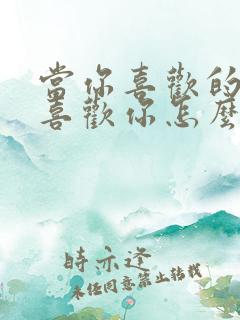 當你喜歡的
喜歡你怎麼
時亦逆
未任同意禁止轉載